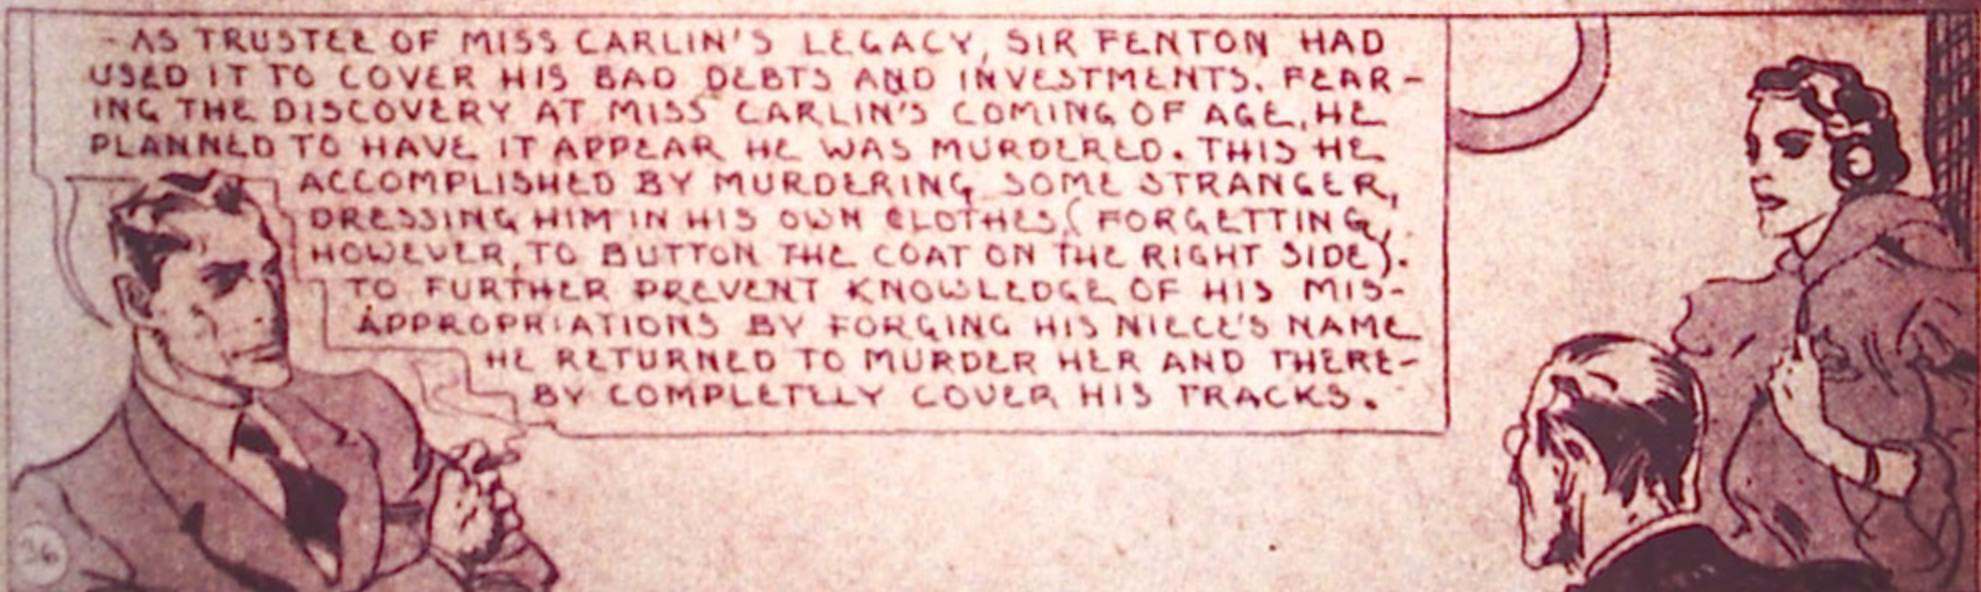 - AS TRUSTEE OF MISS CARLIN'S LEGACY, SIR FENTON HAD
USED IT TO COVER HIS BAD DEBTS AND INVESTMENTS. FEAR-
ING THE DISCOVERY AT MISS CARLIN'S COMING OF AGE, HE
PLANNED TO HAVE IT APPEAR HE WAS MURDERED. THIS HE
ACCOMPLISHED BY MURDERING SOME STRANGER,
DRESSING HIM IN HIS OWN CLOTHES, (FORGETTING,
HOWEVER, TO BUTTON THE COAT ON THE RIGHT SIDE).
TO FURTHER PREVENT KNOWLEDGE OF HIS MIS-
APPROPRIATIONS BY FORGING HIS NIECE'S NAME
HE RETURNED TO MURDER HER AND THERE-
BY COMPLETELY COVER HIS TRACKS.
36